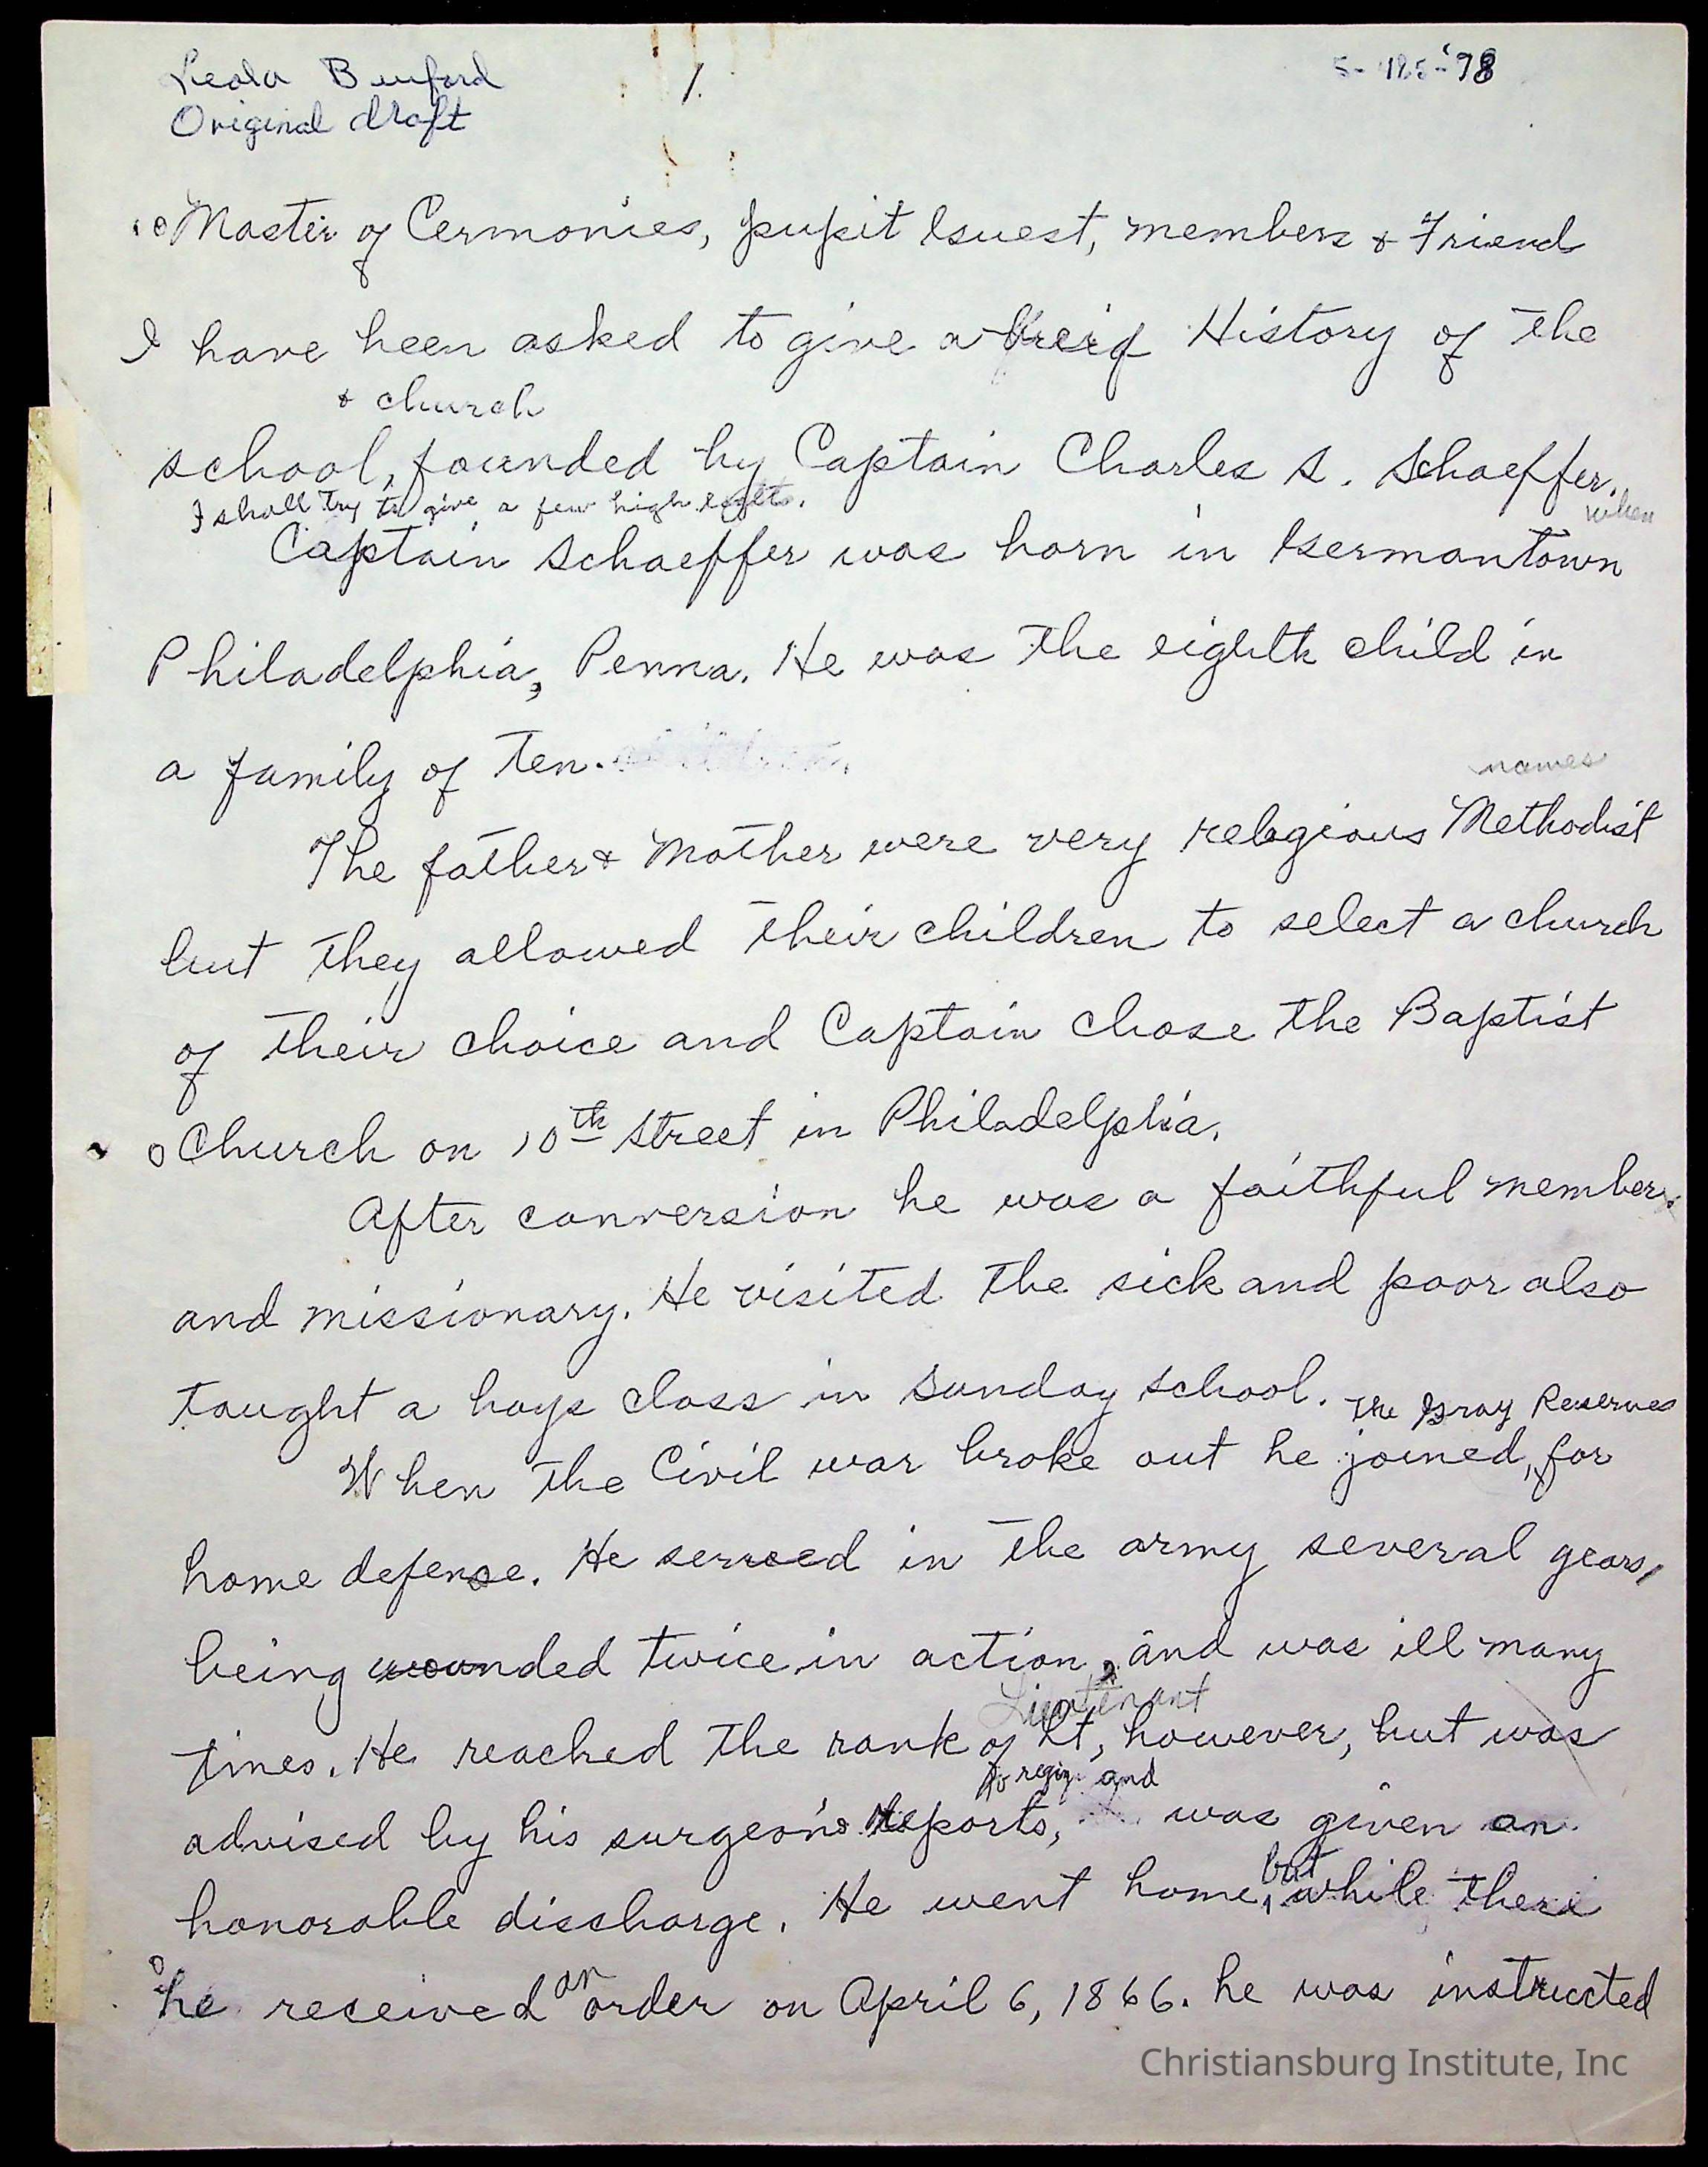 Leola Buford
Original draft
1.
Master of Cermonies, pupit Guest, members & Friend
I have been asked to give a breif History of the
& church
school, founded by Captain Charles S. Schaeffer.
I shall try to give a few high lights.
when
Captain Schaeffer was born in Germantown
Philadelphia, Penna. He was the eighth child in
a family of ten.
names
The father & Mother were very religious Methodist
but they allowed their children to select a church
of their choice and Captain chose the Baptist
Church on 10th Street in Philadelphia.
After conversion he was a faithful member
and missionary. He visited the sick and poor also
taught a boys class in Sunday school.
The Gray Reserves
When the Civil war broke out he joined, for
home defense. He served in the army several years,
being wounded twice in action, and was ill many
Lieutenant
times. He reached the rank of Lt, however, but was
to resign and
advised by his surgeon's reports, was given an
but
honorable discharge. He went home, while there
an
he received order on April 6, 1866. he was instructed
Christiansburg Institute, Inc